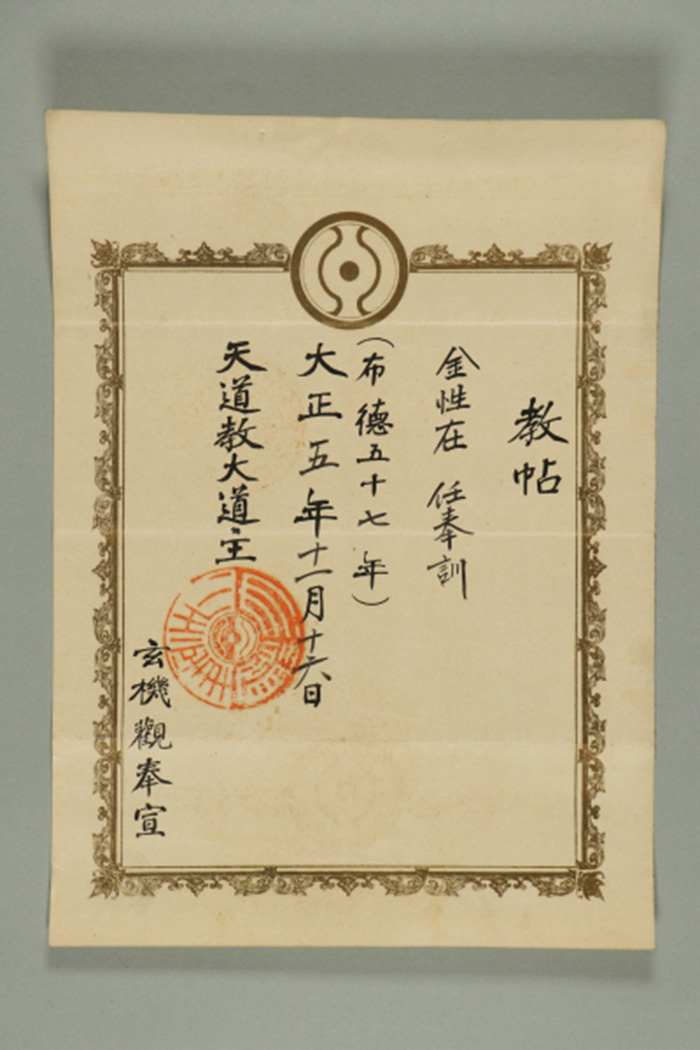 教帖
金性在 任奉訓
(布德五十七年)
大正五年十一月十六日
天道教大道主
玄機觀奉宣